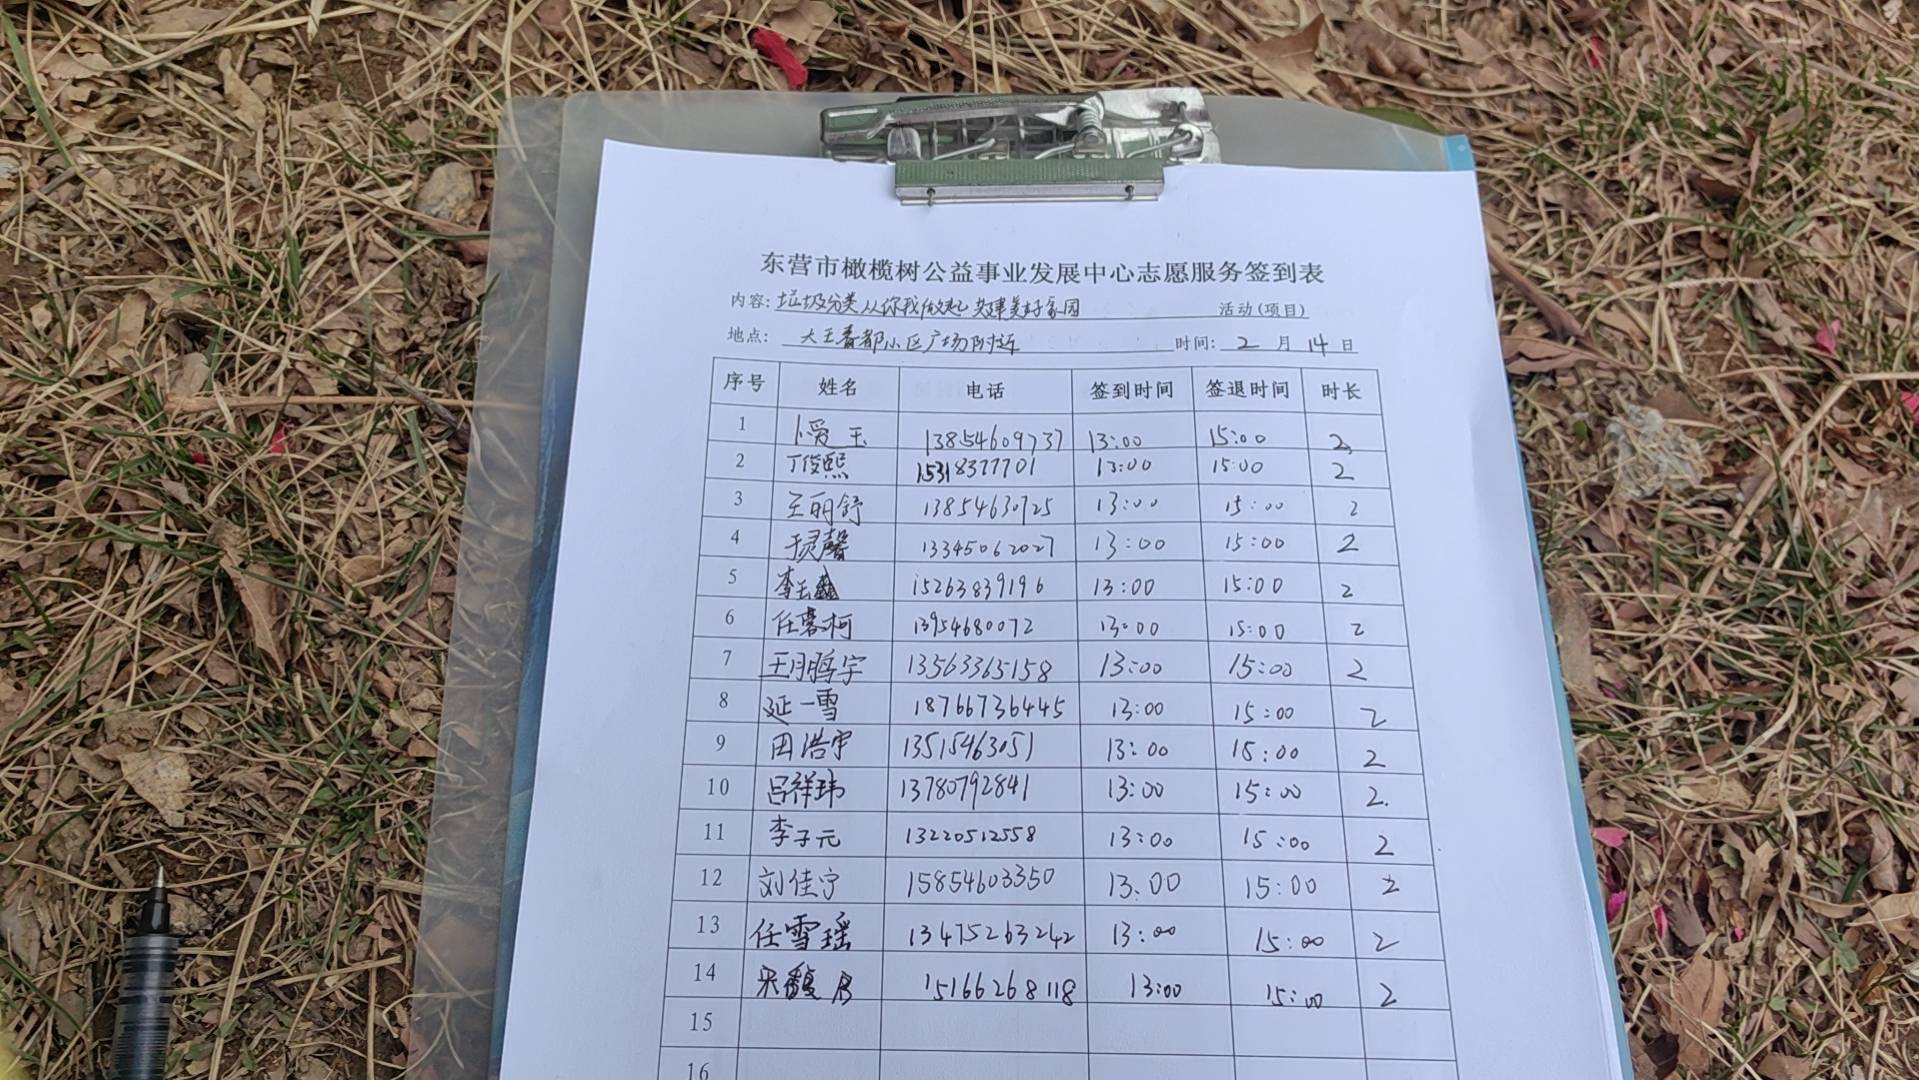 东营市橄榄树公益事业发展中心志愿服务签到表
内容: 垃圾分类从你我做起 共建美好家园 活动(项目)
地点: 大王香都小区广场附近 时间: 2 月 14 日
序号 姓名 电话 签到时间 签退时间 时长
1 卜爱玉 13854609737 13:00 15:00 2
2 丁俊熙 15318377701 13:00 15:00 2
3 王丽舒 13854630725 13:00 15:00 2
4 于灵馨 13345062027 13:00 15:00 2
5 李玉鑫 15263839196 13:00 15:00 2
6 任 柯 13954680072 13:00 15:00 2
7 王鹏宇 13563365158 13:00 15:00 2
8 延一雪 18766736445 13:00 15:00 2
9 田浩宇 13515463051 13:00 15:00 2
10 吕祥玮 13780792841 13:00 15:00 2
11 李子元 13220512558 13:00 15:00 2
12 刘佳宁 15854603350 13:00 15:00 2
13 任雪瑶 13475263242 13:00 15:00 2
14 宋馥 15166268118 13:00 15:00 2
15
16